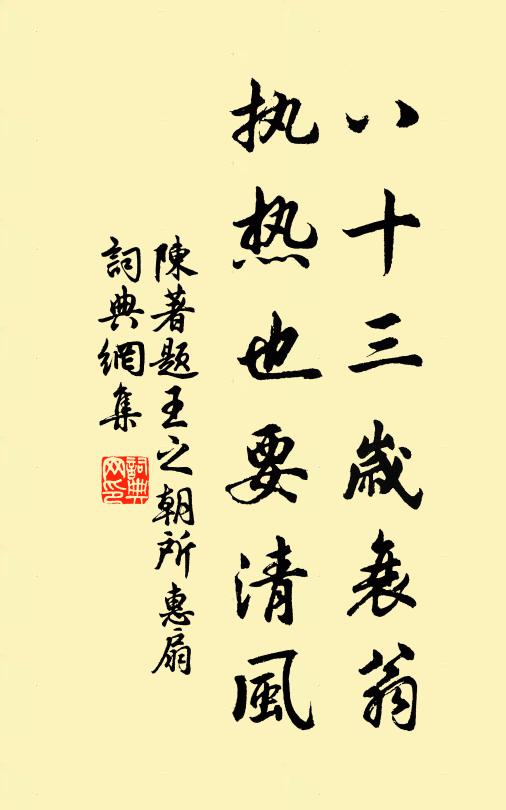 八十三歲衰翁
执热也要清風
陳著題王之朝所惠扇
詞典網集
詞典网印